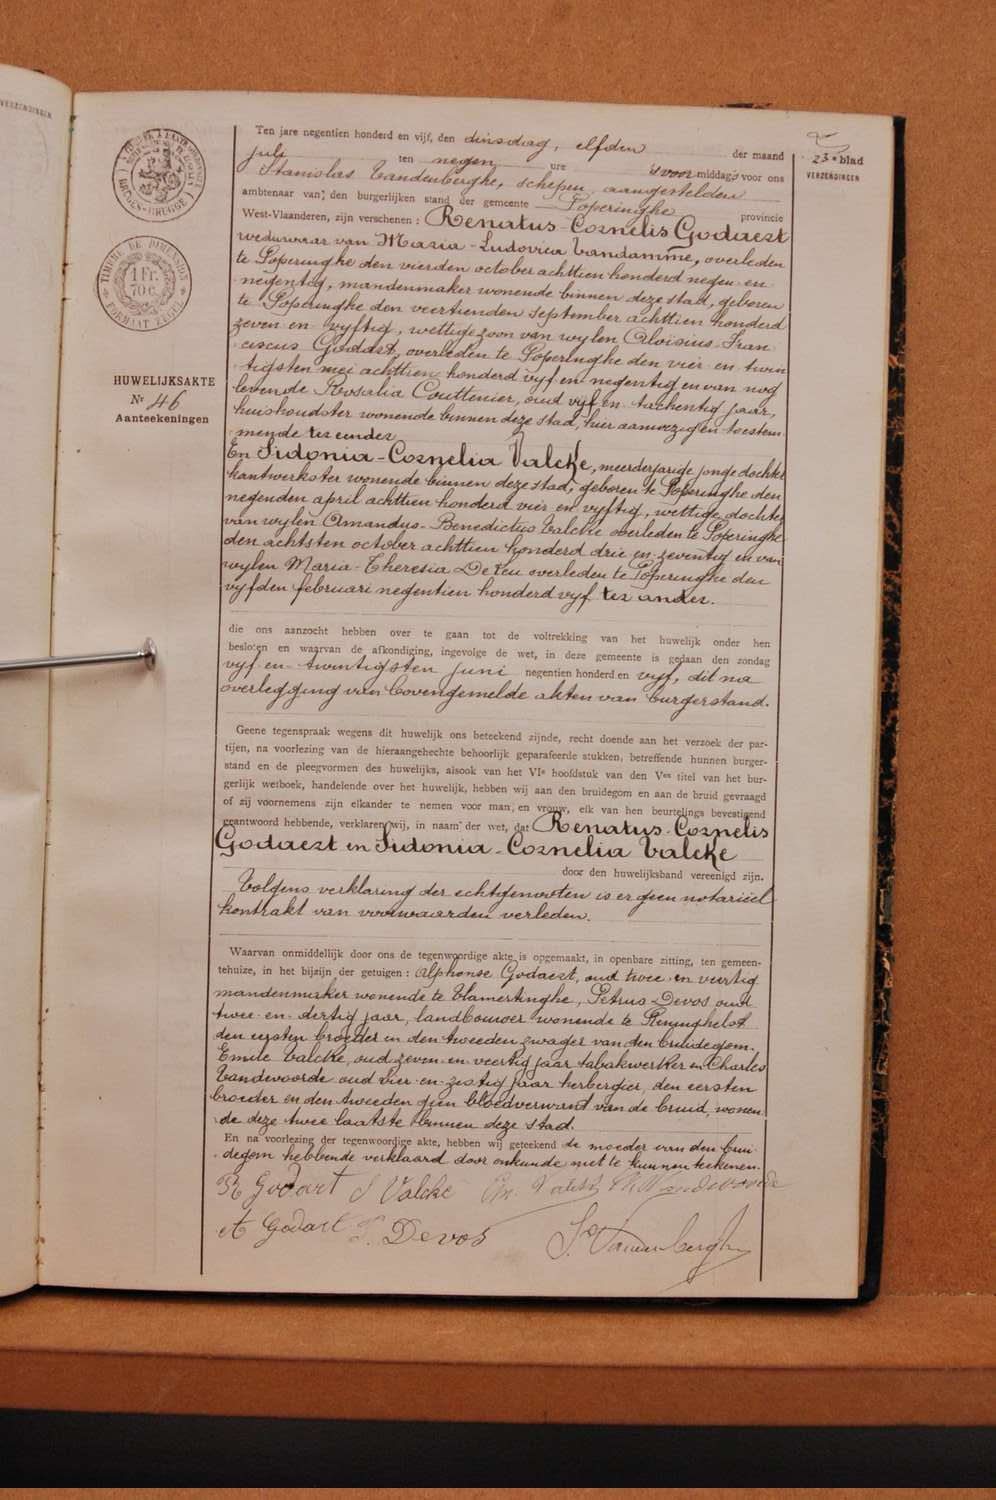 VERZENDINGEN
23e blad
VERZENDINGEN
BRUGES-BRUGGE
TIMBRE DE DIMENSION
1 Fr.
70 C.
FORMAAT ZEGEL
HUWELIJKSAKTE
Nr 46
Aanteekeningen
Ten jare negentien honderd en vijf, den dinsdag, elfden der maand
juli ten negen ure 's voormiddags voor ons
Stanislas Vandenberghe, schepen aangestelden
ambtenaar van den burgerlijken stand der gemeente Poperinghe provincie
West-Vlaanderen, zijn verschenen : Renatus-Cornelis Godaert
weduwaar van Maria-Ludovica Vandamme, overleden
te Poperinghe den vierden october achttien honderd negen en
negentig, mandenmaker wonende binnen deze stad, geboren
te Poperinghe den veertienden september achttien honderd
zeven en vyftig, wettige zoon van wylen Aloisius-Fran
ciscus Godart, overleden te Poperinghe den vier en twin
tigsten mei achttien honderd vyf en negentig en van nog
levende Rosalia Couttenier, oud vyf en tachentig jaar,
huishoudster wonende binnen deze stad, hier aanwezig en toestem
mende ter eender
En Sidonia-Cornelia Valcke, meerderjarige jonge dochter
kantwerkster wonende binnen deze stad, geboren te Poperinghe den
negenden april achttien honderd vier en vyftig, wettige dochter
van wylen Amandus-Benedictus Valcke overleden te Poperinghe
den achtsten october achttien honderd drie en zeventig en van
wylen Maria-Theresia De Keu overleden te Poperinghe den
vyfden februari negentien honderd vyf ter ander.
die ons aanzocht hebben over te gaan tot de voltrekking van het huwelijk onder hen
besloten en waarvan de afkondiging, ingevolge de wet, in deze gemeente is gedaan den zondag
vyf en twintigsten juni negentien honderd en vyf, dit na
overlegging van bovengemelde akten van burgerstand.
Geene tegenspraak wegens dit huwelijk ons beteekend zijnde, recht doende aan het verzoek der par-
tijen, na voorlezing van de hieraangehechte behoorlijk geparafeerde stukken, betreffende hunnen burger-
stand en de pleegvormen des huwelijks, alsook van het VIe hoofdstuk van den Ven titel van het bur-
gerlijk wetboek, handelende over het huwelijk, hebben wij aan den bruidegom en aan de bruid gevraagd
of zij voornemens zijn elkander te nemen voor man en vrouw, elk van hen beurtelings bevestigend
geantwoord hebbende, verklaren wij, in naam der wet, dat Renatus-Cornelis
Godaert en Sidonia-Cornelia Valcke
door den huwelijksband vereenigd zijn.
Volgens verklaring der echtgenooten is er geen notariëel
kontrakt van voorwaarden verleden.
Waarvan onmiddellijk door ons de tegenwoordige akte is opgemaakt, in openbare zitting, ten gemeen-
tehuize, in het bijzijn der getuigen : Alphonse Godaert, oud twee en veertig
mandenmaker wonende te Vlamertinghe, Petrus Devos oud
twee en dertig jaar, landbouwer wonende te Reninghelst
den eersten broeder en den tweeden zwager van den bruidegom.
Emile Valcke, oud zeven en veertig jaar tabakwerker en Charles
Vandevoorde oud vier en zestig jaar herbergier, den eersten
broeder en den tweeden geen bloedverwant van de bruid, wonen
de deze twee laatste binnen deze stad.
En na voorlezing der tegenwoordige akte, hebben wij geteekend de moeder van den brui
degom hebbende verklaard door onkunde niet te kunnen teekenen.
R Godart S Valcke Em. Valcke Ch Vandevoorde
A Godart P. Devos St Vandenberghe